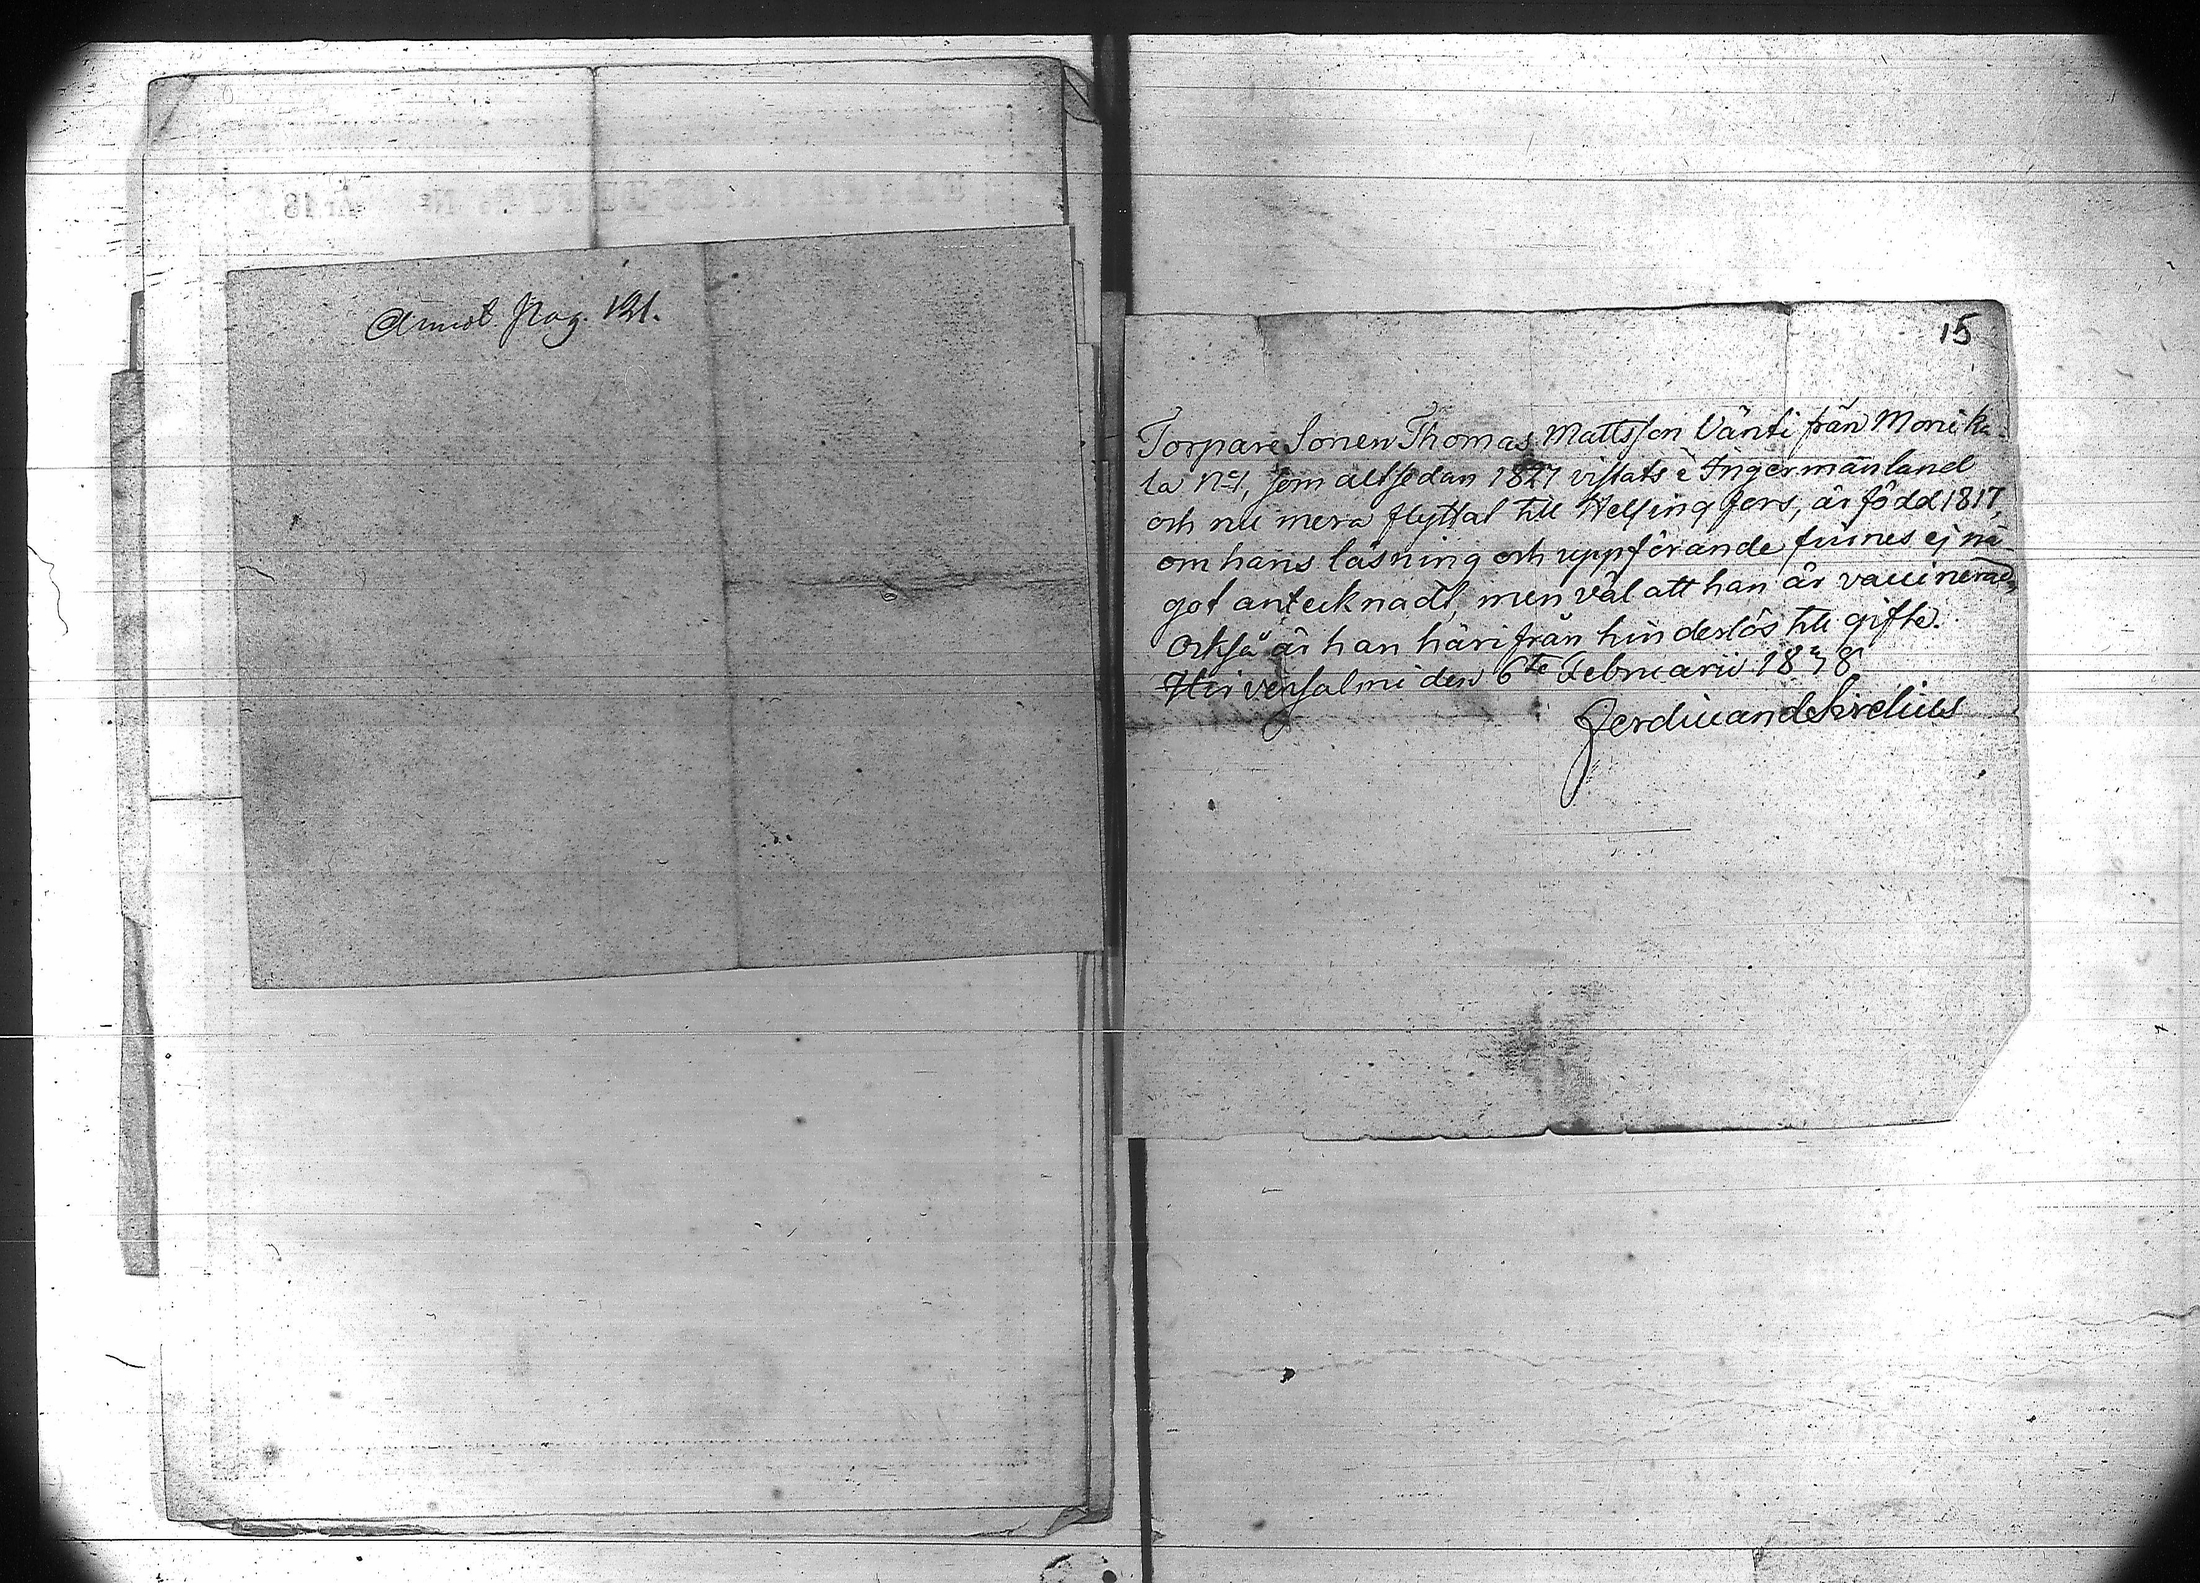 Annot. Pag. 121.
15
Torpare Sonen Thomas Mattsson Vänti från Monika-
la No 1, som altsedan 1827 vistats i Ingermanland
och nu mera flyttat till Helsingfors, är född 1817,
om hans läsning och uppförande finnes ej nå-
got antecknadt, men väl att han är vaccinerad,
också är han härifrån hinderlös till gifte.
Hirvensalmi den 6te Februarii 1838
Ferdinand Sirelius